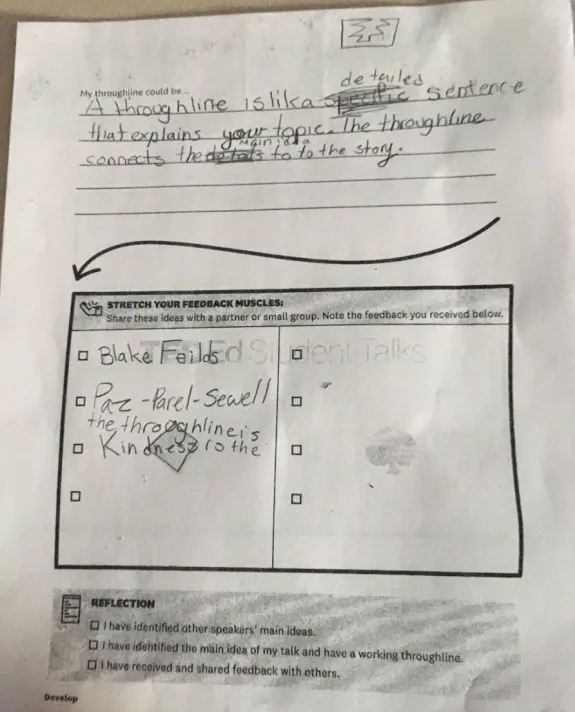 My throughline could be...
detailes
A throughline is lika specific sentence
that explains your topic. The throughline
main idea
connects the details to to the story.
STRETCH YOUR FEEDBACK MUSCLES:
Share these ideas with a partner or small group. Note the feedback you received below.
TED Ed Student Talks
Blake Feilds
Paz-Parel-Sewell
the throughline is
Kindness is the
REFLECTION
I have identified other speakers' main ideas.
I have identified the main idea of my talk and have a working throughline.
I have received and shared feedback with others.
Develop